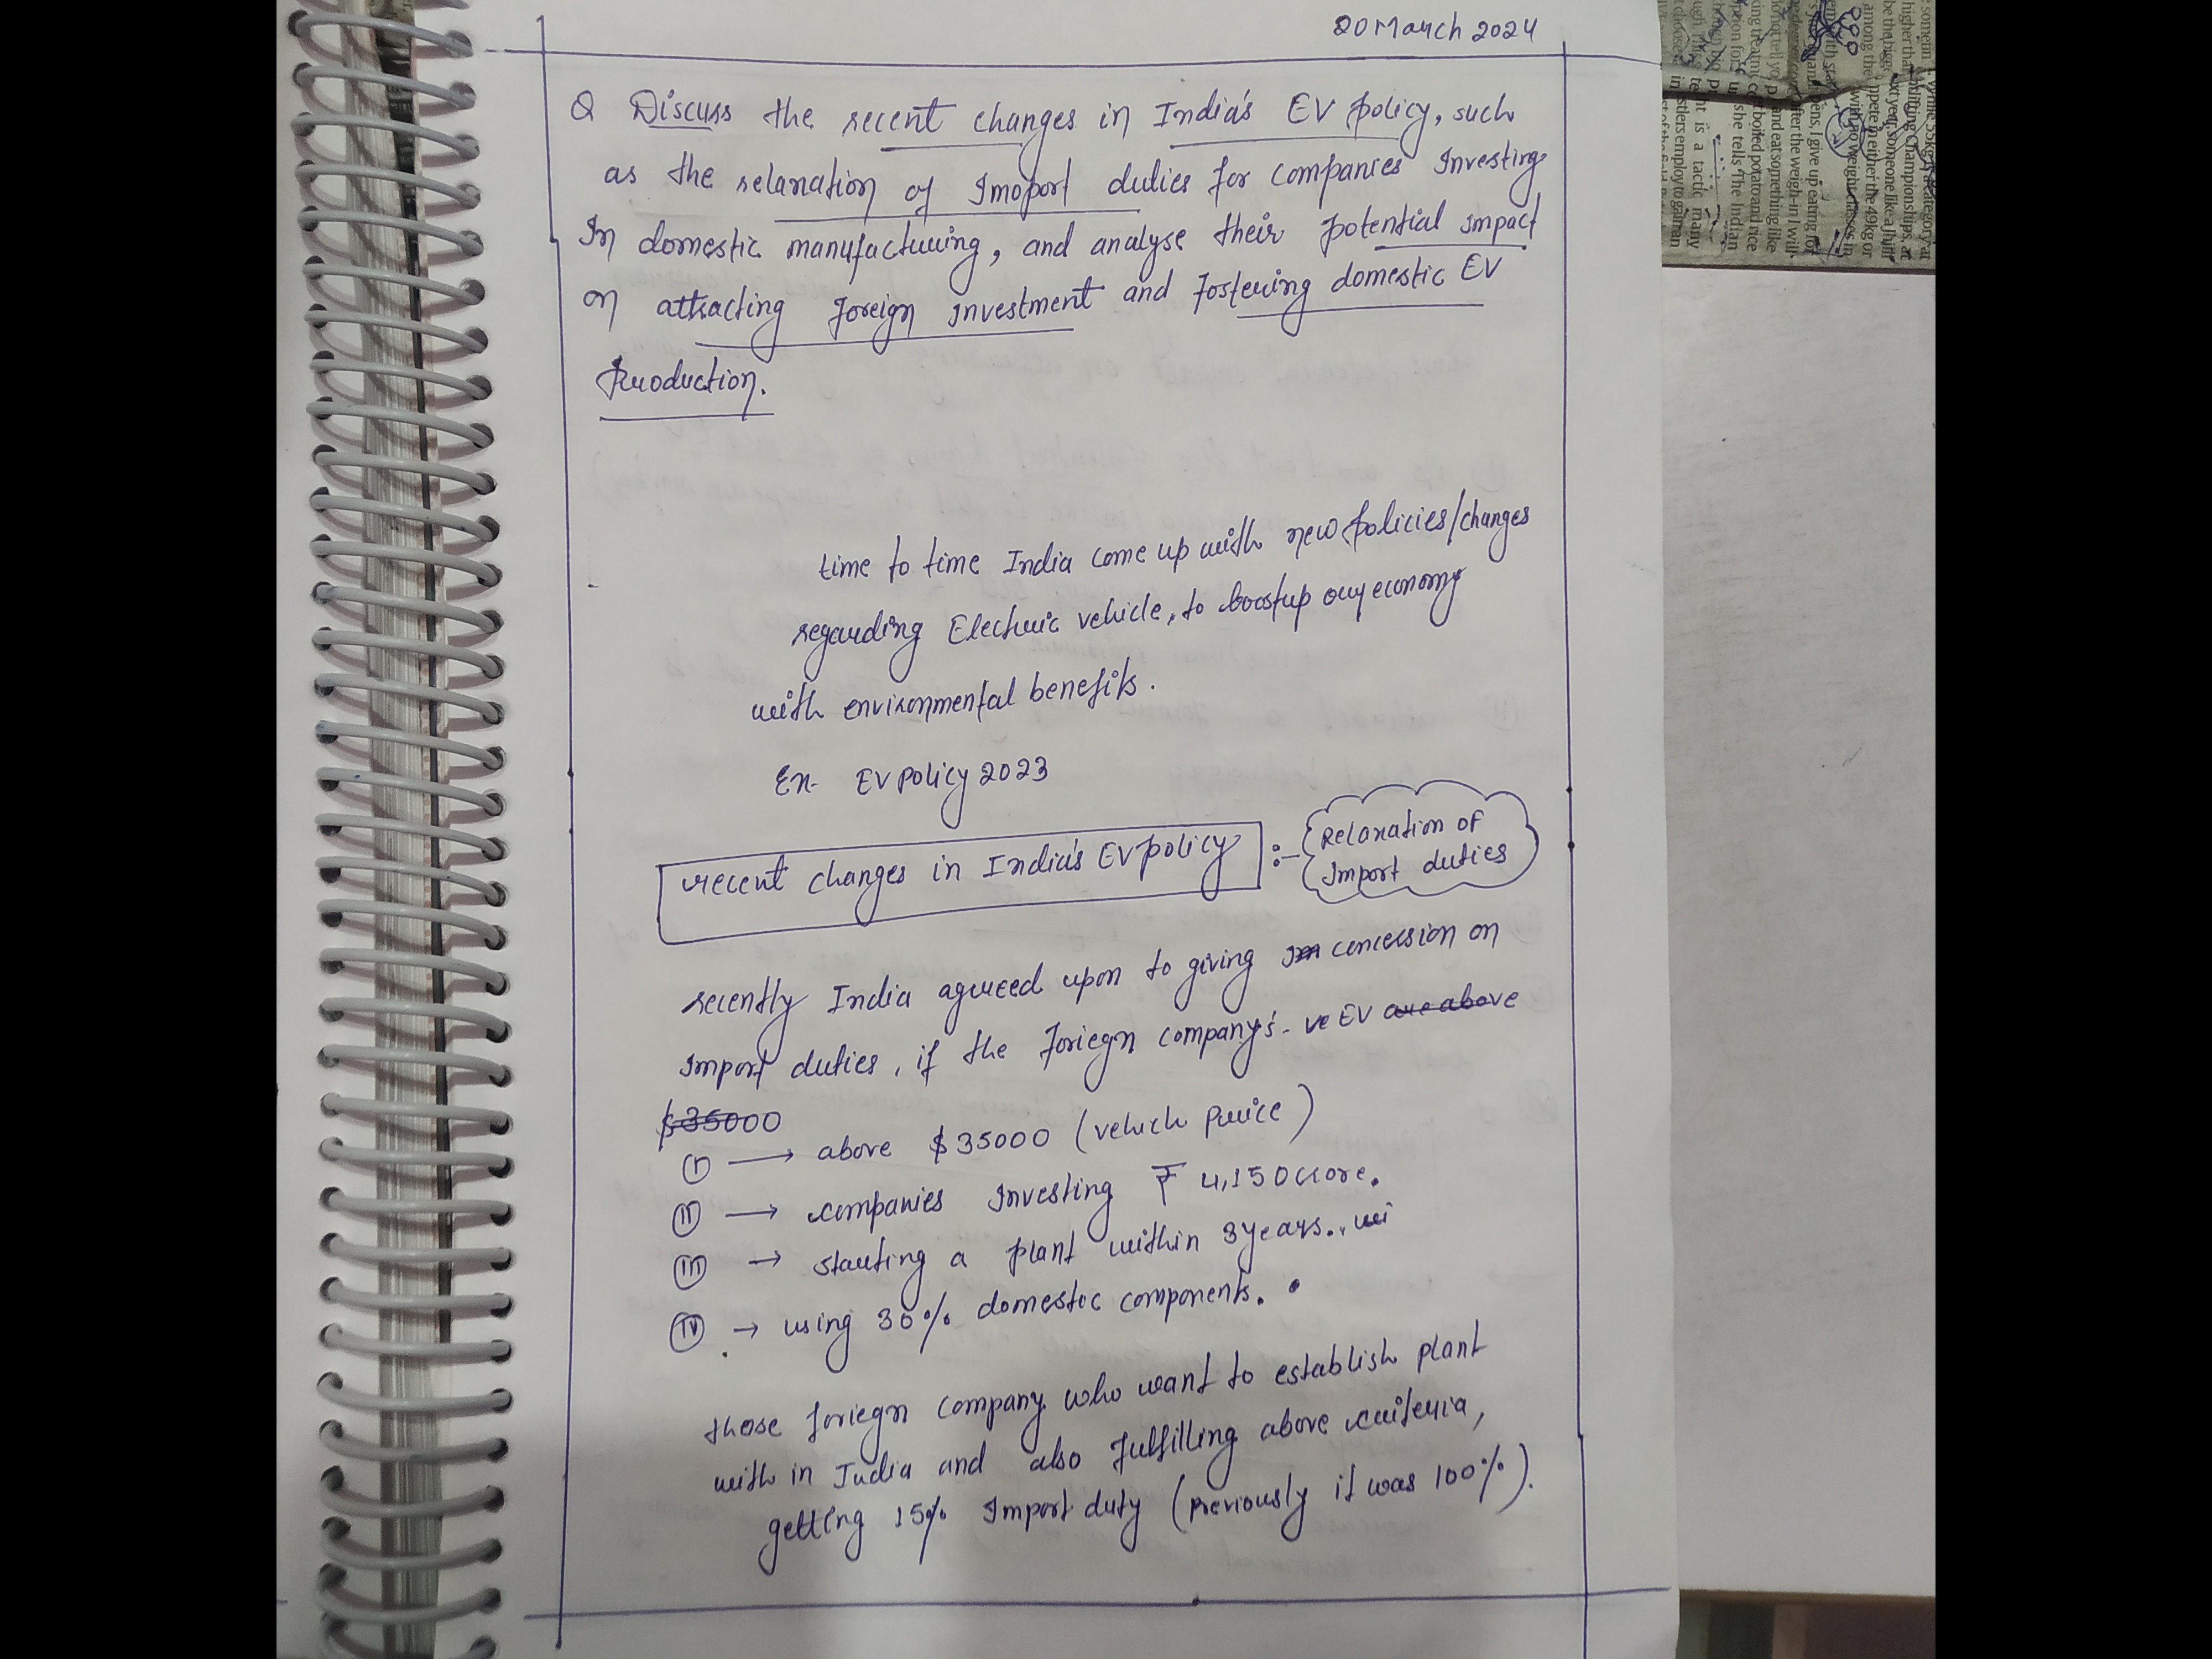 20 March 2024
Q Discuss the recent changes in India's EV policy, such
as the relaxation of Imoport duties for companies Investing
In domestic manufacturing, and analyse their potential impact
on attracting foreign investment and fostering domestic EV
Production.
time to time India come up with new policies/changes
regarding Electric vehicle, to boostup our economy
with environmental benefits.
Ex- EV policy 2023
recent changes in India's EV policy :- Relaxation of
Import duties
recently India agreed upon to giving concession on
Import duties, if the foriegn company's - ve EV are above
$35000
(I) → above $35000 (vehicle price)
(II) → companies Investing ₹ 4,150 crore.
(III) → starting a plant within 3 years.. wi
(IV) → using 30% domestic components.
those foriegn company who want to establish plant
with in India and also fulfilling above criteria,
getting 15% Import duty (previously it was 100%).